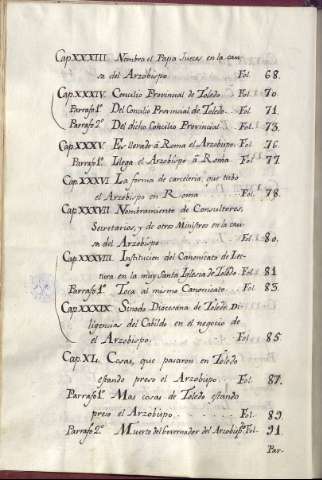 Cap. XXXIII. Nombra el Papa Jueces en la cau-
sa del Arzobispo. Fol. 68.
Cap. XXXIV. Concilio Provincial de Toledo. Fol. 70.
Parrafo 1º Del Concilio Provincial de Toledo... Fol. 71.
Parrafo 2º Del dicho Concilio Provincial. Fol. 73.
Cap. XXXV. Es llevado à Roma el Arzobispo. Fol. 76.
Parrafo 1º Llega el Arzobispo â Roma Fol. 77
Cap. XXXVI. La forma de carceleria, que tubo
el Arzobispo en Roma Fol. 78.
Cap. XXXVII. Nombramiento de Consultores,
Secretarios, y de otro Ministros en la cau-
sa del Arzobispo Fol. 80.
Cap. XXXVIII. Institucion del Canonicato de Lec-
tura en la muy Santa Iglesia de Toledo. Fol. 81
Parrafo 1º Toca al mismo Canonicato. Fol. 83
Cap. XXXIX. Sinodo Diocesana de Toledo Di-
ligencias del Cabildo en el negocio de
el Arzobispo. Fol. 85.
Cap. XL. Cosas, que pasaron en Toledo
estando preso el Arzobispo... Fol. 87.
Parrafo 1º Mas cosas de Toledo estando
preso el Arzobispo...... Fol. 89.
Parrafo 2º Muerte del Governador del Arzobispº Fol. 91.
Par-